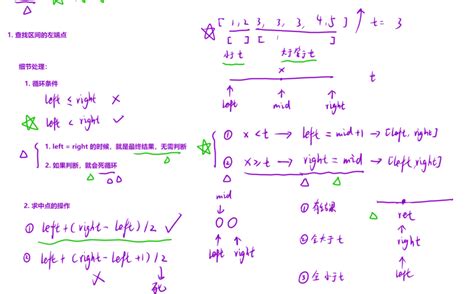 1. 查找区间的左端点
细节处理：
1. 循环条件
left ≤ right ×
left < right ✓
1. left = right 的时候，就是最终结果，无需判断
2. 如果判断，就会死循环
2. 求中点的操作
① left + (right - left) / 2 ✓
② left + (right - left + 1) / 2
×
死
[ 1, 2 3, 3, 3, 4, 5 ] t = 3
[ ] [ ]
小于 t 大于等于 t
x
t
left mid right
① x < t → left = mid + 1 → [left, right]
② x ≥ t → right = mid → [left, right]
mid
left right
① 有结果
② 全大于 t
③ 全小于 t
ret
right
left